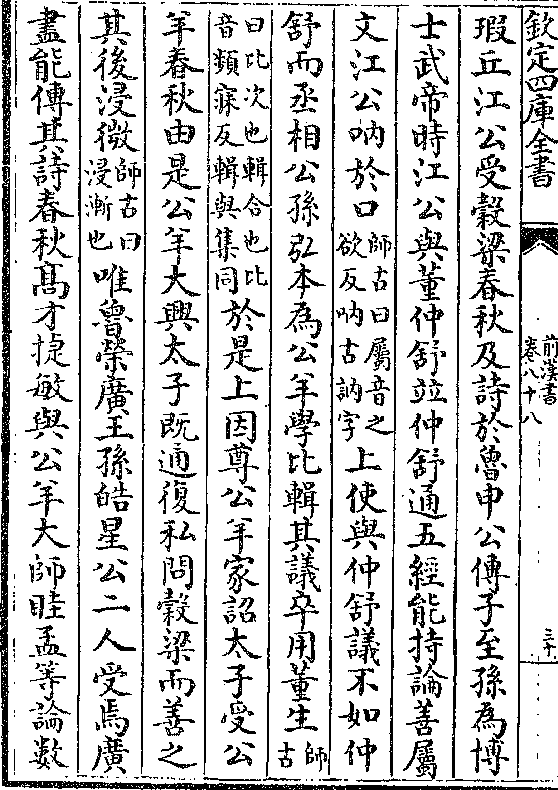 欽定四庫全書
前漢書
卷八十八
三十
瑕丘江公受穀梁春秋及詩於魯申公傳子至孫為博
士武帝時江公與董仲舒並仲舒通五經能持論善屬
文江公吶於口師古曰屬音之欲反吶古訥字上使與仲舒議不如仲
舒而丞相公孫弘本為公羊學比輯其議卒用董生師古
曰比次也輯合也比音頻寐反輯與集同於是上因尊公羊家詔太子受公
羊春秋由是公羊大興太子既通復私問穀梁而善之
其後浸微師古曰浸漸也唯魯榮廣王孫皓星公二人受焉廣
盡能傳其詩春秋高才捷敏與公羊大師眭孟等論數